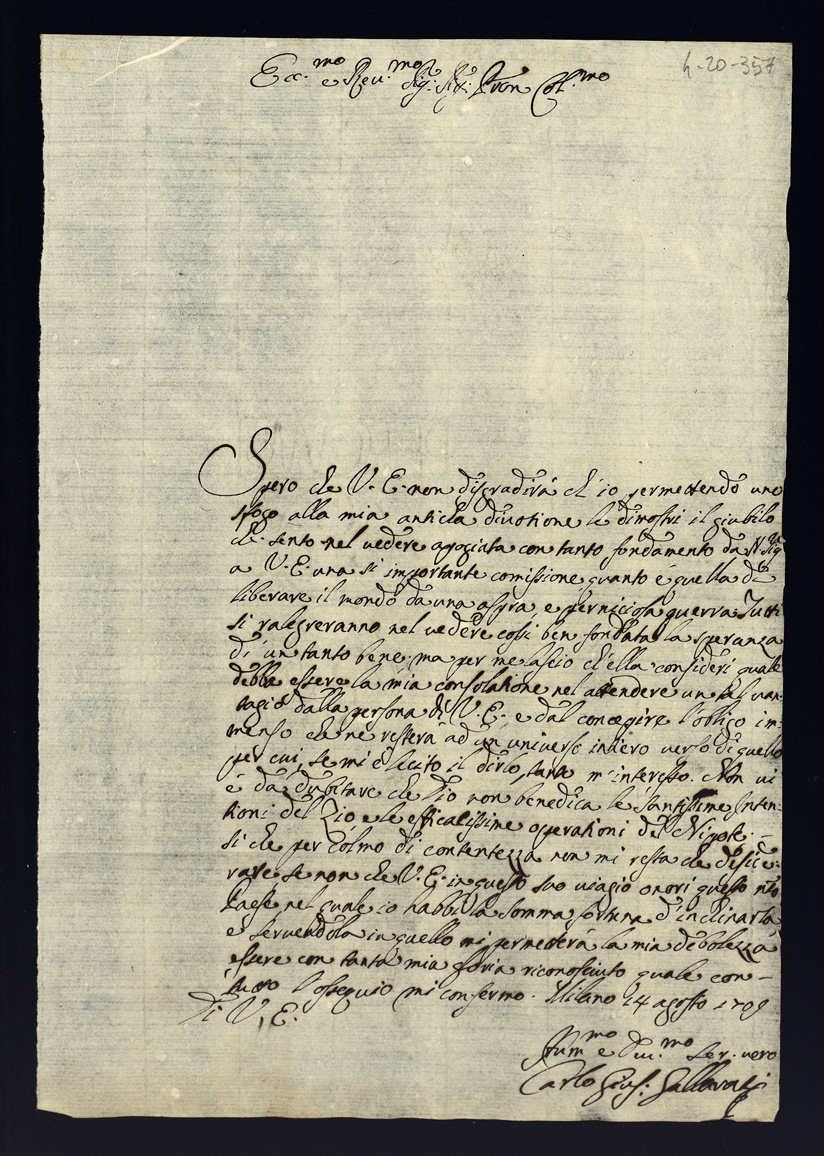 4-20-357
Ecc.mo e Reu.mo Sig.r Sig.r Pron Col.mo
Spero che V. E. non disgradirà ch'io permettendo uno
sfogo alla mia anticha diuotione le dimostri il giubilo
che sento nel uedere apogiata con tanto fondamento da N. Sig.re
a V. E. una si importante comissione quanto è quella di
liberare il mondo da una aspra e perniciosa guerra. Tutti
si ralegreranno nel uedere cossi ben fondata la speranza
di un tanto bene, ma per me lascio ch'ella consideri quale
debba essere la mia consolatione nel attendere un tal uan-
tagio dalla persona di V. E., e dal concepire l'obligo im-
menso che ne resterà ad un universo intiero uerso di quello
per cui, se mi è lecito il dirlo, tanto m'interesso. Non ui
è da dubitare che Dio non benedica le santissime Inten-
tioni del Zio e le efficacissime operationi del Nipote
si che per colmo di contentezza non mi resta che deside-
rare se non che V. E. in questo suo uiagio onori questo nro
Paese nel quale io habbi la somma fortuna d'inchinarla
e seruendola in quello mi permetterà la mia debolezza
essere con tanta mia gloria riconosciuto quale con
tutto l'ossequio mi confermo. Milano 14 agosto 1709
Di V. E.
Hum.mo e Diu.mo Ser. uero
Carlo Gius.